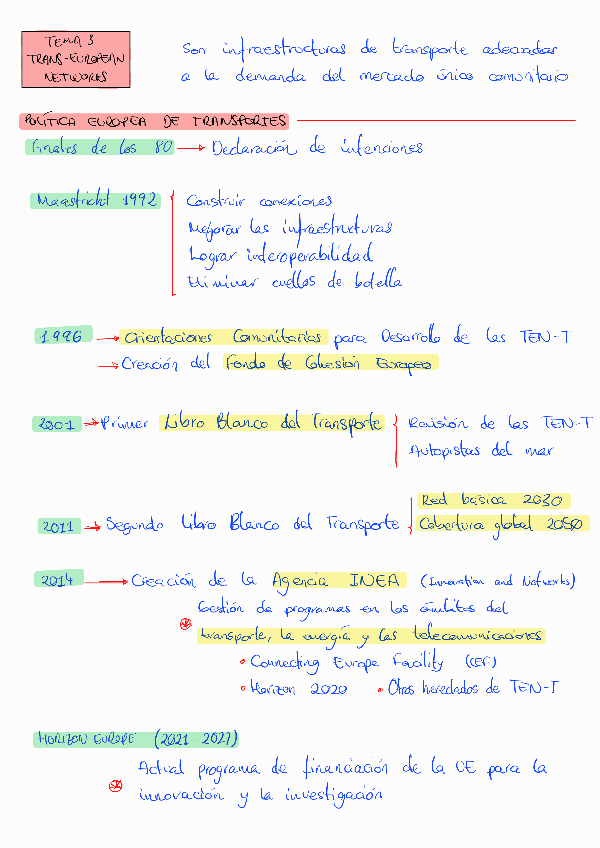 TEMA 3
TRANS-EUROPEAN
NETWORKS
Son infraestructuras de transporte adecuadas
a la demanda del mercado único comunitario
POLÍTICA EUROPEA DE TRANSPORTES
Finales de los 80 → Declaración de intenciones
Maastricht 1992
Construir conexiones
Mejorar las infraestructuras
Lograr interoperabilidad
Eliminar cuellos de botella
1996 → Orientaciones Comunitarias para Desarrollo de las TEN-T
→ Creación del Fondo de Cohesión Europeo
2001 → Primer Libro Blanco del Transporte
Revisión de las TEN-T
Autopistas del mar
2011 → Segundo Libro Blanco del Transporte
Red básica 2030
Cobertura global 2050
2014 → Creación de la Agencia INEA (Innovation and Networks)
Gestión de programas en los ámbitos del
transporte, la energía y las telecomunicaciones
• Connecting Europe Facility (CEF)
• Horizon 2020 • Otros heredados de TEN-T
HORIZON EUROPE (2021-2027)
Actual programa de financiación de la UE para la
innovación y la investigación